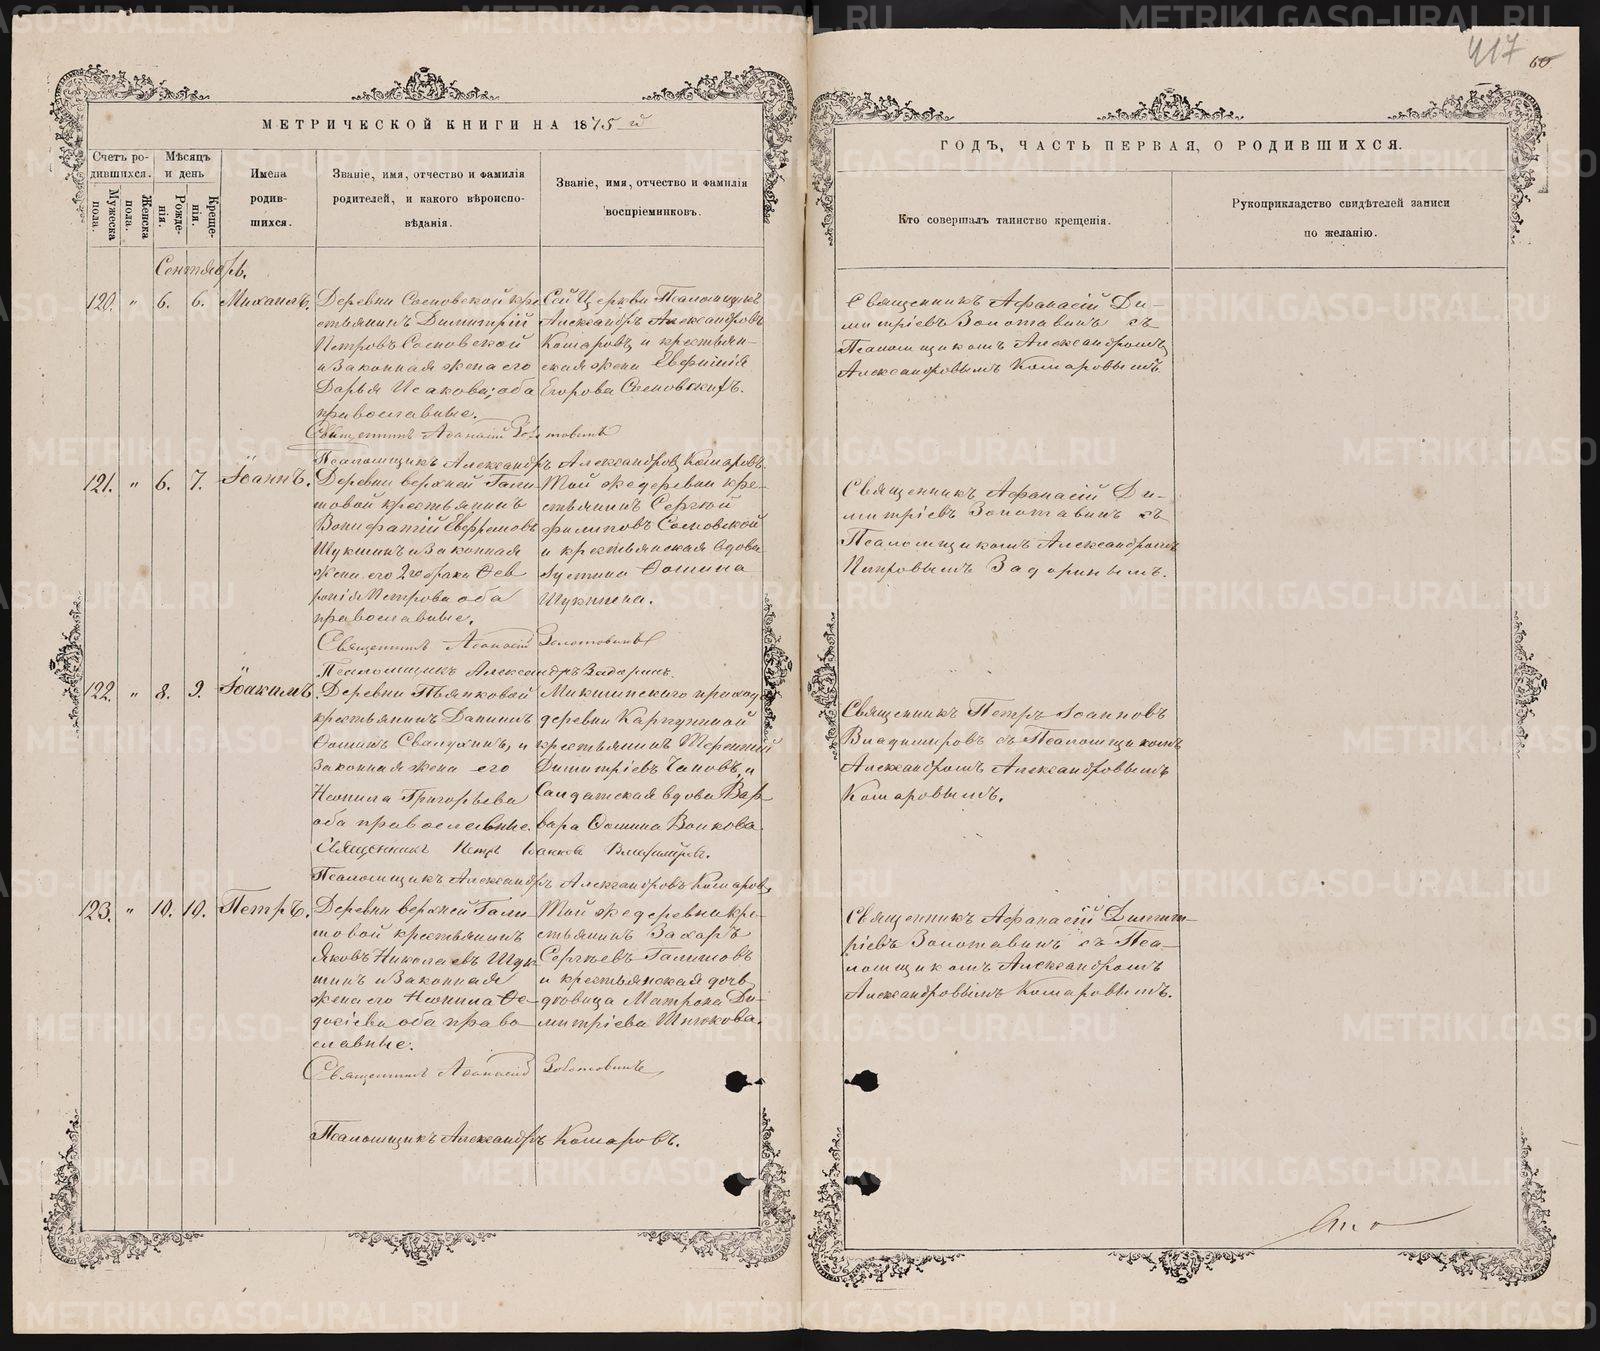 417
60
МЕТРИЧЕСКОЙ КНИГИ НА 1875 й
ГОДЪ, ЧАСТЬ ПЕРВАЯ, О РОДИВШИХСЯ.
Счетъ ро-
дившихся.
Мужеска
пола.
Женска
пола.
Мѣсяцъ
и день
Рожде-
нія.
Креще-
нія.
Имена
родив-
шихся.
Званіе, имя, отчество и фамилія
родителей, и какого вѣроиспо-
вѣданія.
Званіе, имя, отчество и фамилія
воспріемниковъ.
Кто совершалъ таинство крещенія.
Рукоприкладство свидѣтелей записи
по желанію.
Сентябрь.
120. " 6. 6. Михаилъ.
Деревни Сосновской кре
стьянинъ Димитрій
Петровъ Сосновской
и Законная жена его
Дарья Исакова; оба
православные.
Сей Церкви Псаломщикъ
Александръ Александровъ
Комаровъ и крестьян-
ская жена Евфимія
Егорова Сосновскихъ.
Священникъ Афанасій Ди-
митріевъ Золотавинъ съ
Псаломщикомъ Александромъ
Александровымъ Комаровымъ.
Священникъ Афанасій Золотовинъ
Псаломщикъ Александръ Александровъ Комаровъ.
121. " 6. 7. Іоаннъ.
Деревни верхней Гали-
мовой крестьянинъ
Вонифатій Евфремовъ
Щукинъ и Законная
жена его 2го брака Фев
ронія Петрова оба
православные.
Той же деревни кре-
стьянинъ Сергѣй
Филиповъ Сосновской
и крестьянская вдова
Устина Фомина
Щукина.
Священникъ Афанасій Ди-
митріевъ Золотавинъ съ
Псаломщикомъ Александромъ
Петровымъ Задоринымъ.
Священникъ Афанасій Золотовинъ
Псаломщикъ Александръ Задоринъ.
122. " 8. 9. Іоакимъ.
Деревни Пьянковой
крестьянинъ Даниилъ
Фоминъ Свалухинъ, и
Законная жена его
Неонила Григорьева
оба православные.
Микшинского прихода
деревни Карпушиной
крестьянинъ Терентій
Димитріевъ Чаповъ, и
Салдатская вдова Вар-
вара Фомина Волкова.
Священникъ Петръ Іоанновъ
Владимировъ съ Псаломщикомъ
Александромъ Александровымъ
Комаровымъ.
Священникъ Петръ Іоанновъ Владиміровъ.
Псаломщикъ Александръ Александровъ Комаровъ.
123. " 10. 10. Петръ.
Деревни верхней Гали-
мовой крестьянинъ
Яковъ Николаевъ Щук
инъ и Законная
жена его Неонила Фе-
досіева оба право
славные.
Той же деревни кре-
стьянинъ Захаръ
Сергѣевъ Галимовъ
и крестьянская дочь
дѣвица Матрона Ди-
митріева
Священникъ Афанасій Димит-
ріевъ Золотавинъ съ Пса-
ломщикомъ Александромъ
Александровымъ Комаровымъ.
Священникъ Афанасій Золотовинъ
Псаломщикъ Александръ Комаровъ.
METRIKI.GASO-URAL.RU